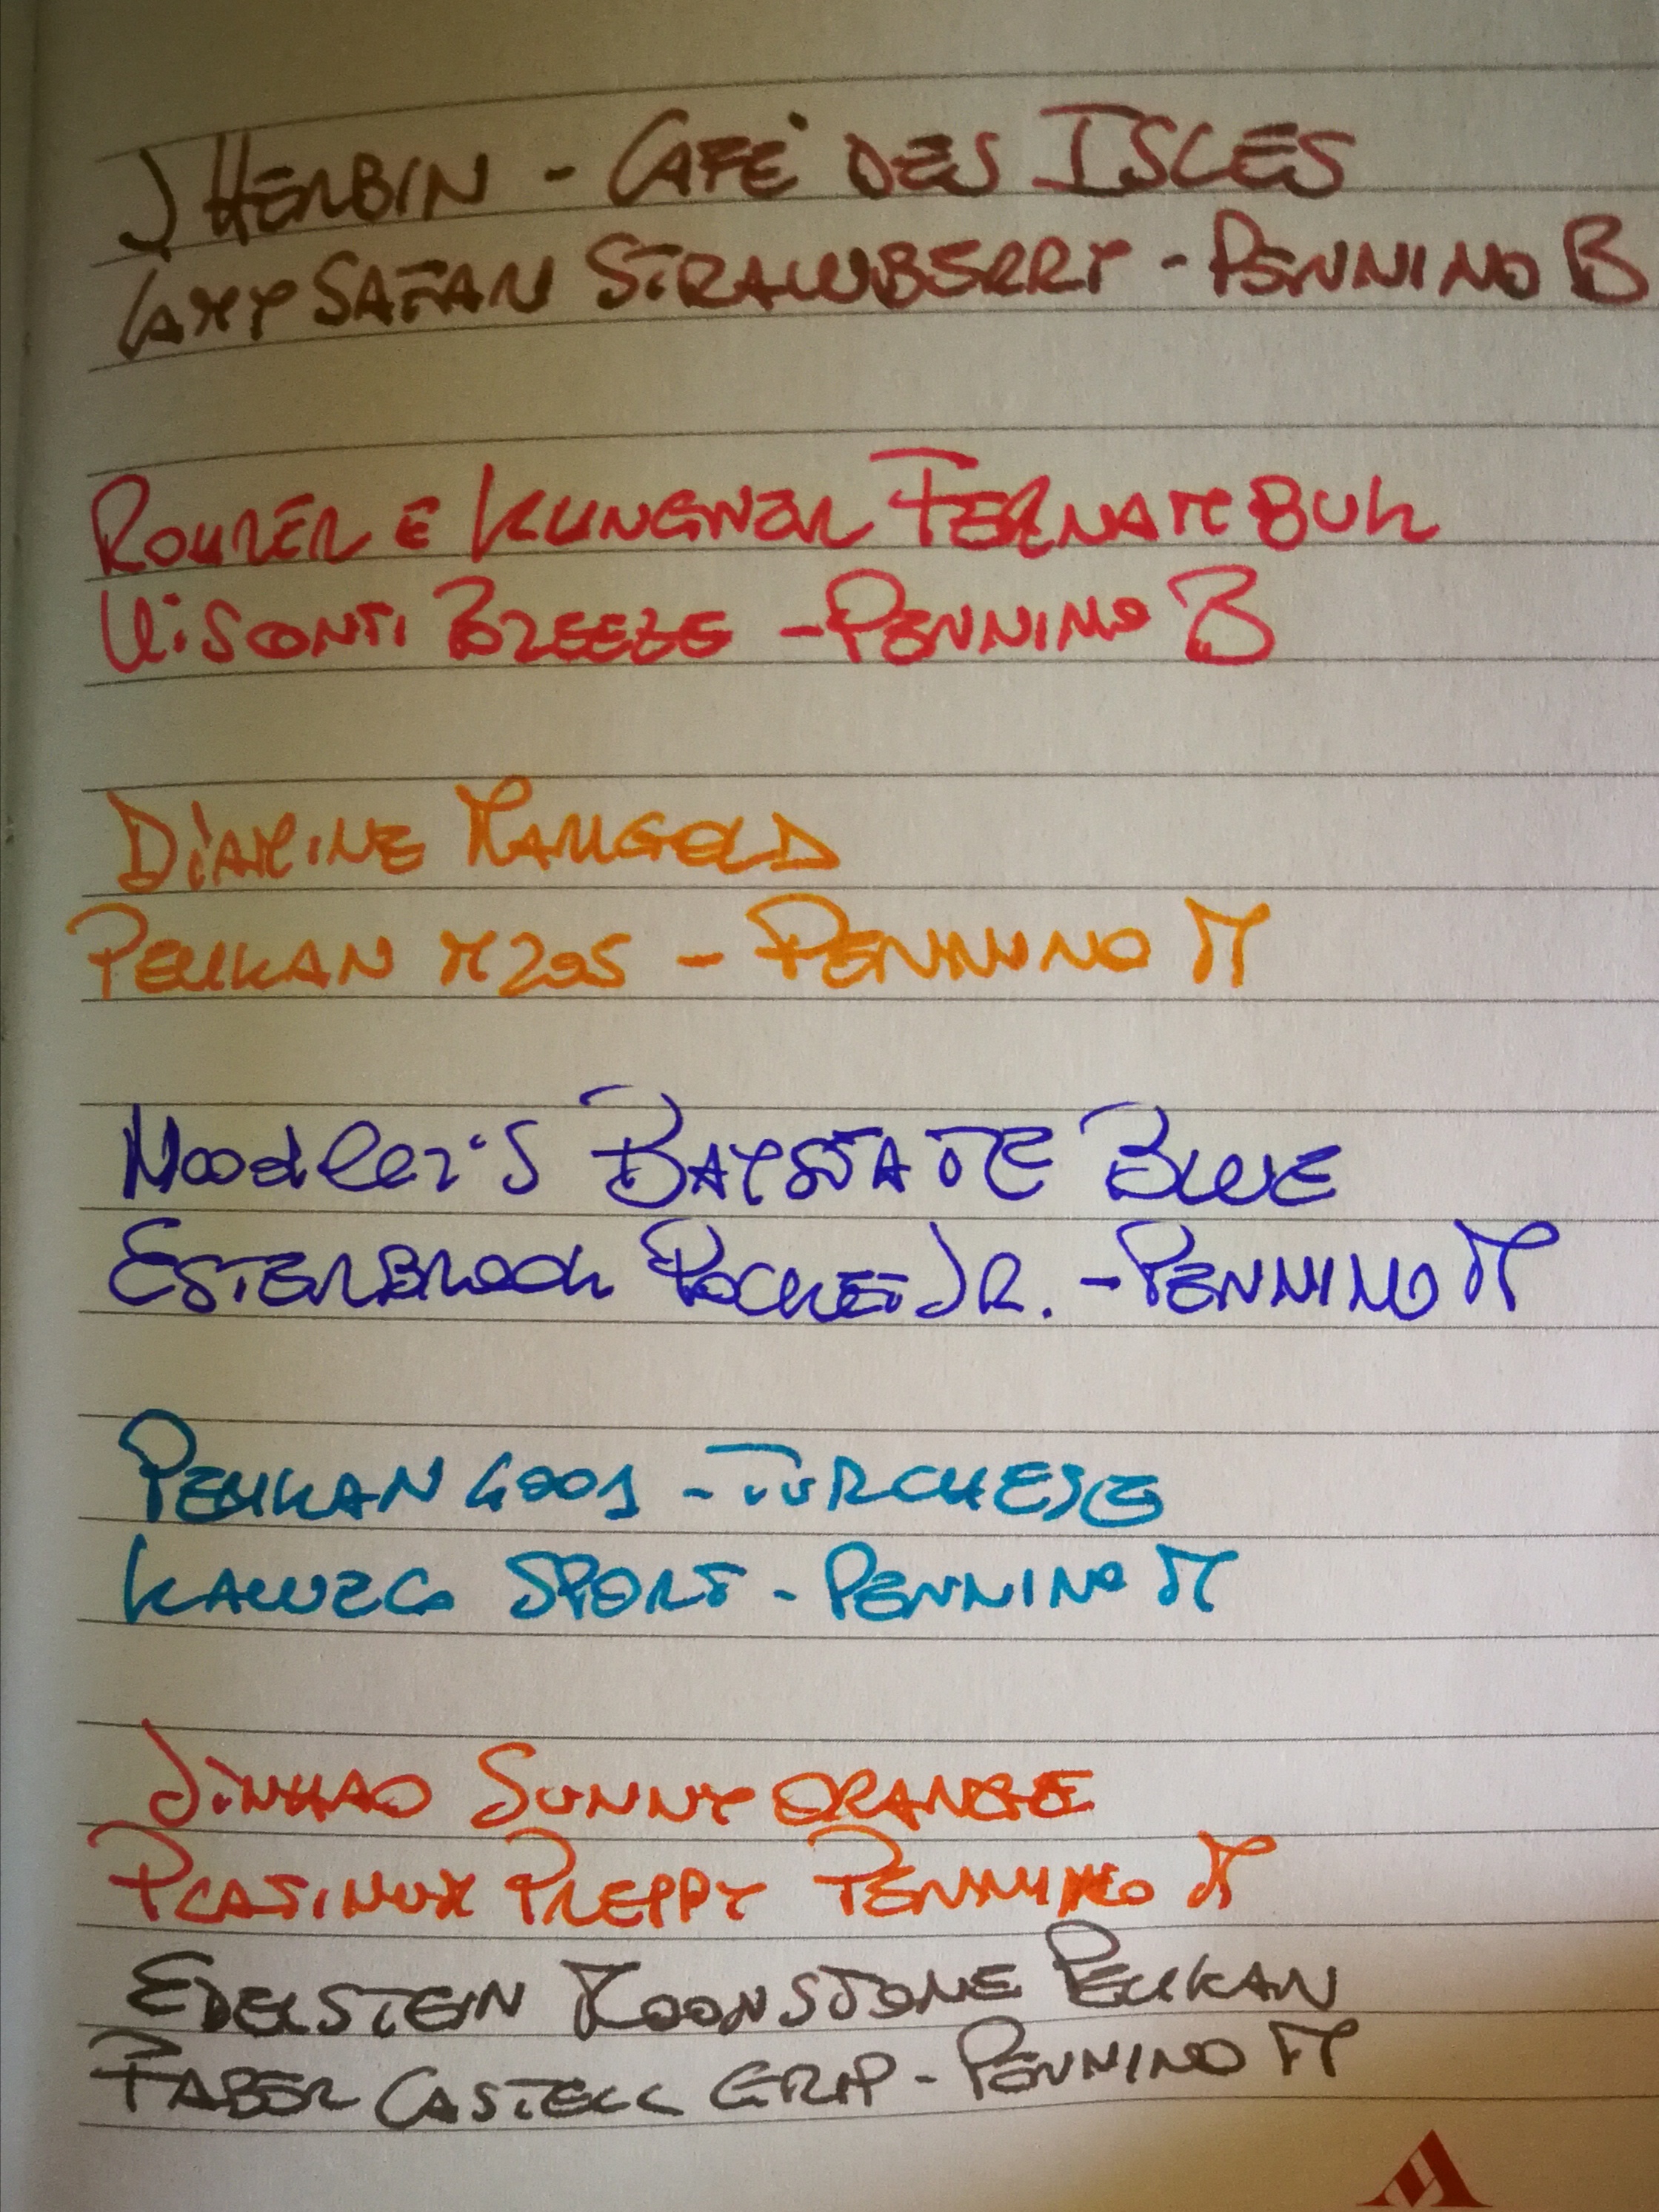 J HERBIN - CAFÈ DES ISLES
LAMY SAFARI STRAWBERRY - PENNINO B
ROHRER E KLINGNER FERNAMBUK
VISCONTI BREEZE - PENNINO B
DIAMINE MARIGOLD
PELIKAN M205 - PENNINO M
Noodler's BAYSTATE BLUE
ESTERBROOK POCKET JR. - PENNINO M
PELIKAN 4001 - TURCHESE
KAWECO SPORT - PENNINO M
JINHAO SUNNY ORANGE
PLATINUM PREPPY PENNINO M
EDELSTEIN MOONSTONE PELIKAN
FABER CASTELL GRIP - PENNINO M